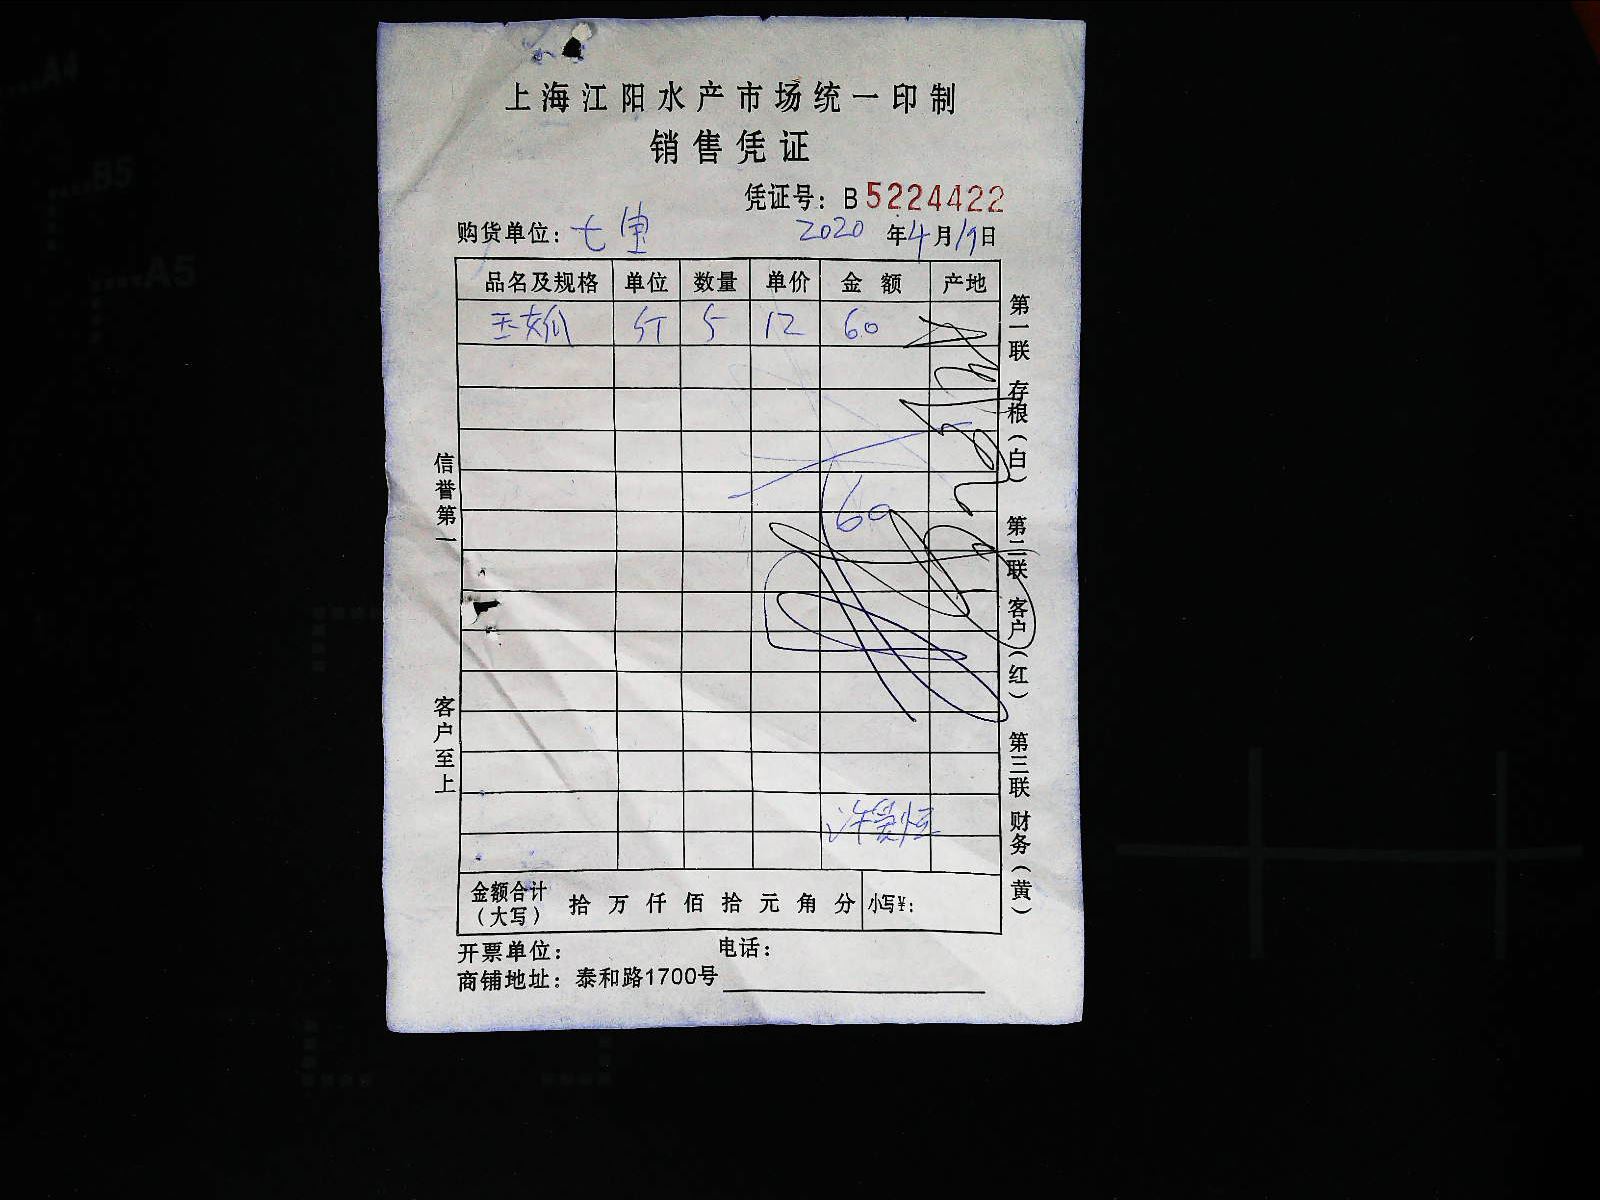 上海江阳水产市场统一印制
销售凭证
凭证号：B 5224422
购货单位：七宝 2020 年 4 月 19 日
品名及规格 单位 数量 单价 金额 产地
斤 5 12 60
60
信誉第一
客户至上
第一联 存根（白） 第二联 客户（红） 第三联 财务（黄）
金额合计（大写） 拾 万 仟 佰 拾 元 角 分 小写¥：
开票单位： 电话：
商铺地址：泰和路1700号
A4
B5
A5